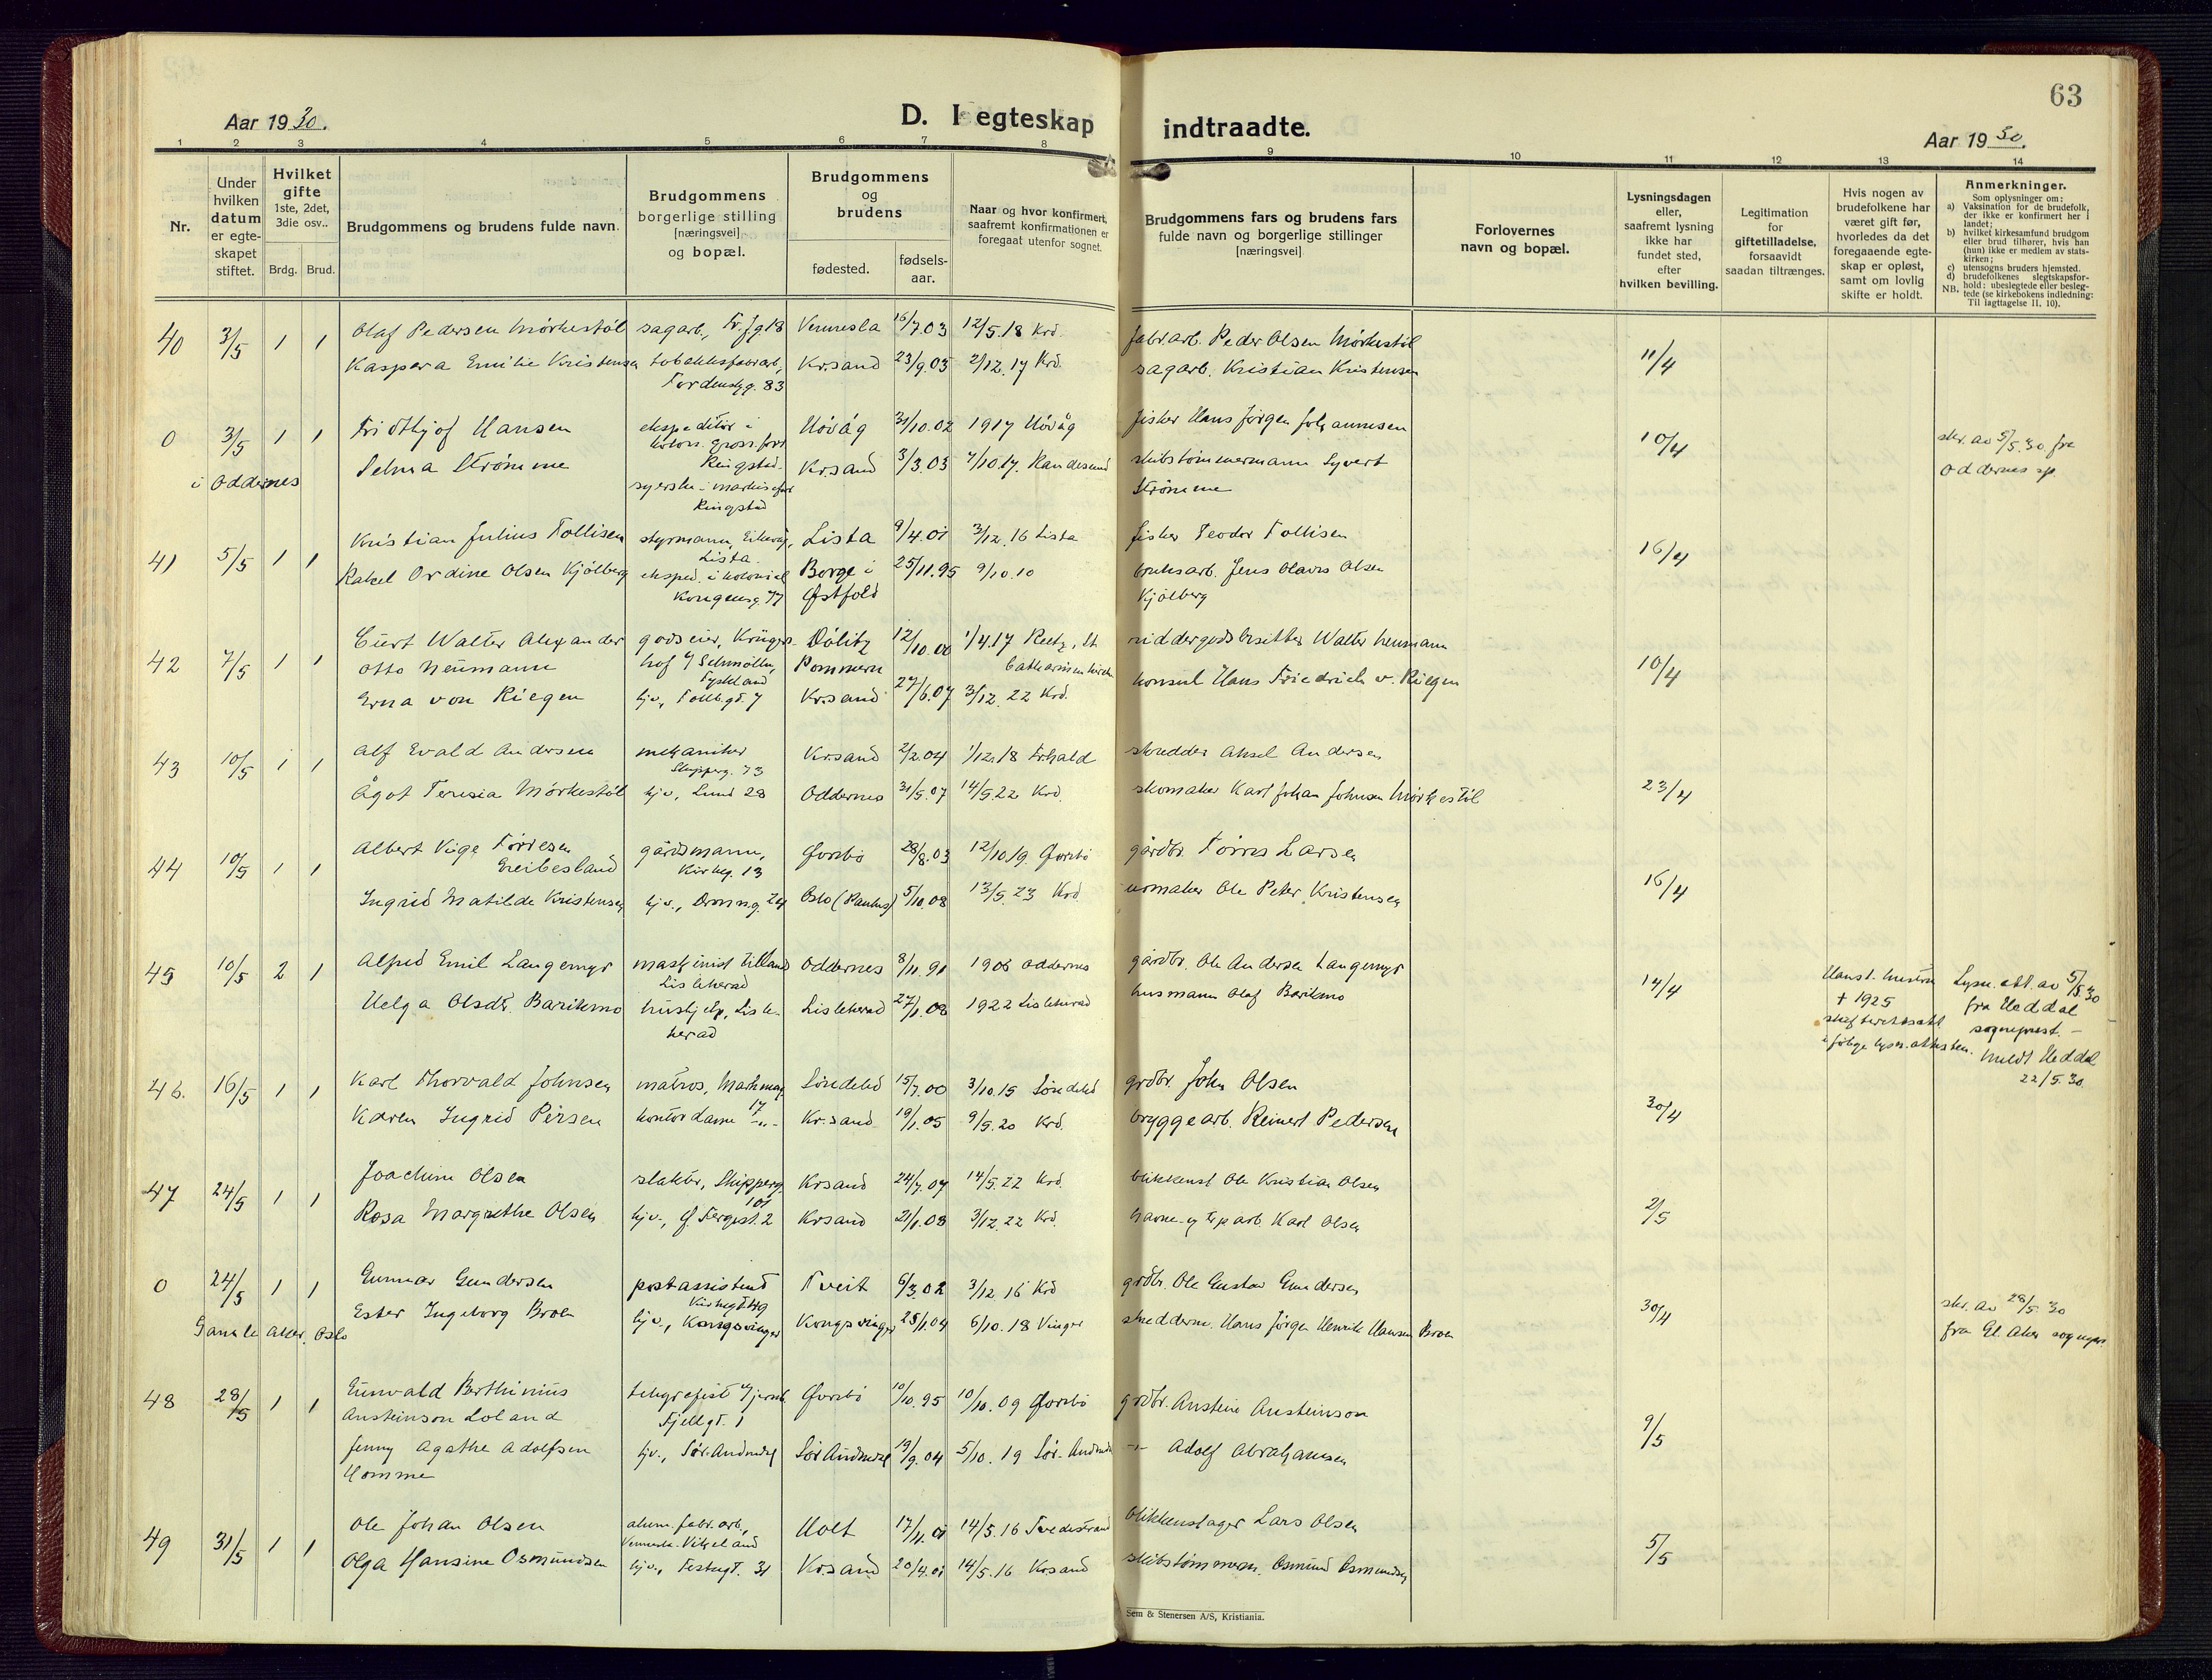 63
Aar 1930. D. I egteskap indtraadte. Aar 1930.
1 2 3 4 5 6 7 8 9 10 11 12 13 14
Nr.
Under hvilken datum er egteskapet stiftet.
Hvilket gifte 1ste, 2det, 3die osv..
Brdg. Brud.
Brudgommens og brudens fulde navn.
Brudgommens borgerlige stilling [næringsvei] og bopæl.
Brudgommens og brudens
fødested. fødsels-aar.
Naar og hvor konfirmert, saafremt konfirmationen er foregaat utenfor sognet.
Brudgommens fars og brudens fars fulde navn og borgerlige stillinger [næringsvei]
Forlovernes navn og bopæl.
Lysningsdagen eller, saafremt lysning ikke har fundet sted, efter hvilken bevilling.
Legitimation for giftetilladelse, forsaavidt saadan tiltrænges.
Hvis nogen av brudefolkene har været gift før, hvorledes da det foregaaende egteskap er opløst, samt om lovlig skifte er holdt.
Anmerkninger.
Som oplysninger om:
a) Vaksination for de brudefolk, der ikke er konfirmert her i landet;
b) hvilket kirkesamfund brudgom eller brud tilhører, hvis han (hun) ikke er medlem av statskirken;
c) utensogns bruders hjemsted.
d) brudefolkenes slegtskapsforhold: ubeslegtede eller beslegtede (se kirkebokens indledning:
NB. Til iagttagelse II, 10).
40 3/5 1 1 Olaf Pedersen Mörkestöl sagarb., Fr.fg 18 Vennesla 16/7.03 12/5.18 Krd. fabr.arb. Peder Olsen Mörkestöl
Kaspera Emilie Kristensen tobakksfabrarb., Kr.sand 23/9.03 2/12.17 Krd. sagarb. Kristian Kristensen 11/4
Tordenskjg. 83
0 3/5 1 1 Fridthjof Hansen ekspeditör i Hövåg 31/10.02 1917 Hövåg fisker Hans Jörgen Johannesen
kolon. gross.forr. 10/4 skr. av 5/5.30 fra
Ringstad. Oddernes sp.
Selma Strömme Kr.sand 3/3.03 7/10.17. Randesund skibstömmermann Syvert
i Oddernes syerske i Strömme
Ringstad
41 5/5 1 1 Kristian Julius Tollisen styrmann, Eikvåg, Lista 9/4.01 3/12.16 Lista fisker Teodor Tollisen
Lista. 16/4
Rakel Ordine Olsen Kjölberg eksped. i kolonial Borge i 25/11.95 9/10.10 bruksarb. Jens Olaves Olsen
Kongensg. 77 Østfold Kjölberg
42 7/5 1 1 Curt Walter Alexander godseier, Krügers- Dölitz 12/10.00 1/4.17 Reetz, St. riddergodsbesitter Walter Neumann
Otto Neumann hof / Schmölln, Pommern Catharinenkirche 10/4
Tyskland
Erna von Riegen hjv., Tollb.gt. 7 Kr.sand 27/6.07 3/12.22 Krd. konsul Hans Friedrich v. Riegen
43 10/5 1 1 Alf Evald Andersen mekaniker Kr.sand 2/2.04 1/12.18 Fr.hald skredder Aksel Andersen
Skipperg. 73
Ågot Teresia Mörkestöl hjv., Lund 28 Oddernes 31/5.07 14/5.22 Krd. skomaker Karl Johan Johnsen Mörkestöl 23/4
44 10/5 1 1 Albert Vige Törresen gårdsmann, Øvrebö 28/8.03 12/10.19. Øvrebö gårdbr. Törres Larsen
Greibesland Kirkeg. 13 16/4
Ingrid Matilde Kristensen hjv., Dronn.g. 24 Oslo (Paulus) 5/10.08 13/5.23 Krd. urmaker Ole Peter Kristensen
45 10/5 2 1 Alfred Emil Langemyr maskinist Tilland Oddernes 8/11.91 1906 Oddernes gårdbr. Ole Andersen Langemyr
Lisleherad 14/4
Helga Olsdt. Barikmo hushjelp, Lisle- Lisleherad 27/1.08 1922 Lisleherad husmann Olaf Barikmo
herad
Hans f. hustru + 1925
Lysn. att. av 5/5.30 fra Heddal sogneprest. –
meldt Heddal 22/5.30.
46. 16/5 1 1 Karl Thorvald Johnsen matros, Markensg. Söndeled 15/7.00 3/10.15 Söndeled grdbr. John Olsen
17 30/4
Karen Ingrid Persen kontordame -"- Kr.sand 19/1.05 9/5.20 Krd. bryggearb. Reinert Pedersen
47 24/5 1 1 Joachim Olsen slakter, Skipperg. Krsand 24/7.07 14/5.22 Krd. blikkensl. Ole Kristian Olsen
101
Rosa Margrethe Olsen hjv., Ø. 2 Krsand 21/1.08 3/12.22 Krd. havne- og arb. Karl Olsen 2/5
0 24/5 1 1 Gunnar Gundersen postassistent Tveit 6/3.02 3/12.16 Krd grdbr. Ole Gustav Gundersen
Kirkegt. 49 30/4 skr. av 28/5.30
Ester Ingeborg Broen hjv., Kongsvinger Kongsvinger 25/1.04 6/10.18 Vinger skredderm. Hans Jörgen Henrik Hansen Broen
Gamle Aker, Oslo fra Gl. Aker sognepr.
48 28/5 1 1 Gunvald Berthinius telegrafist v/jernb. Øvrebö 10/10.95 10/10.09 Øvrebö grdbr. Austein Austeinson
Austeinson Loland Fjellgt. 1 9/5
Jenny Agathe Adolfsen hjv., Sör-Audnedal Sör Audnedal 19/9.04 5/10.19 Sör-Audnedal -"- Adolf Abrahamsen
Homme
49 31/5 1 1 Ole Johan Olsen alum.fabr.arb., Holt 17/11.01 14/5.16 Tvedestrand blikkenslager Lars Olsen
Vennesla-Vikeland 5/5
Olga Hansine Osmundsen hjv., Festngt. 31 Kr.sand 20/4.01 14/5.16 Krsand skibstömmerm. Osmund Osmundsen
Sem & Stenersen A/S, Kristiania.